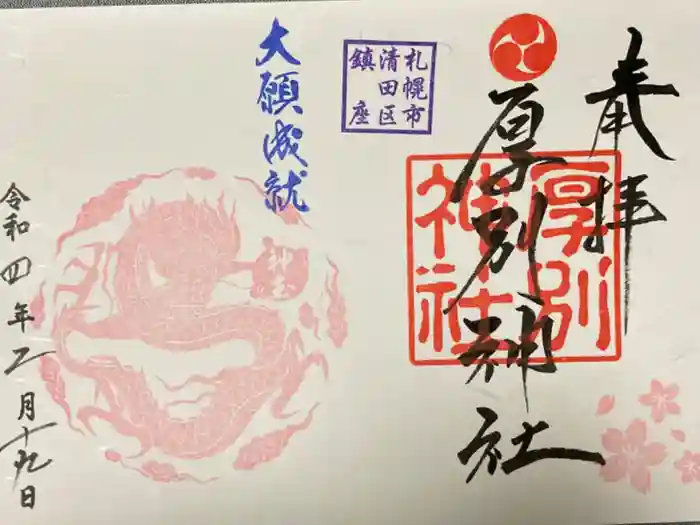 奉拝
厚別神社
厚別
神社
札幌市
清田区
鎮座
大願成就
神社
令和四年二月十九日